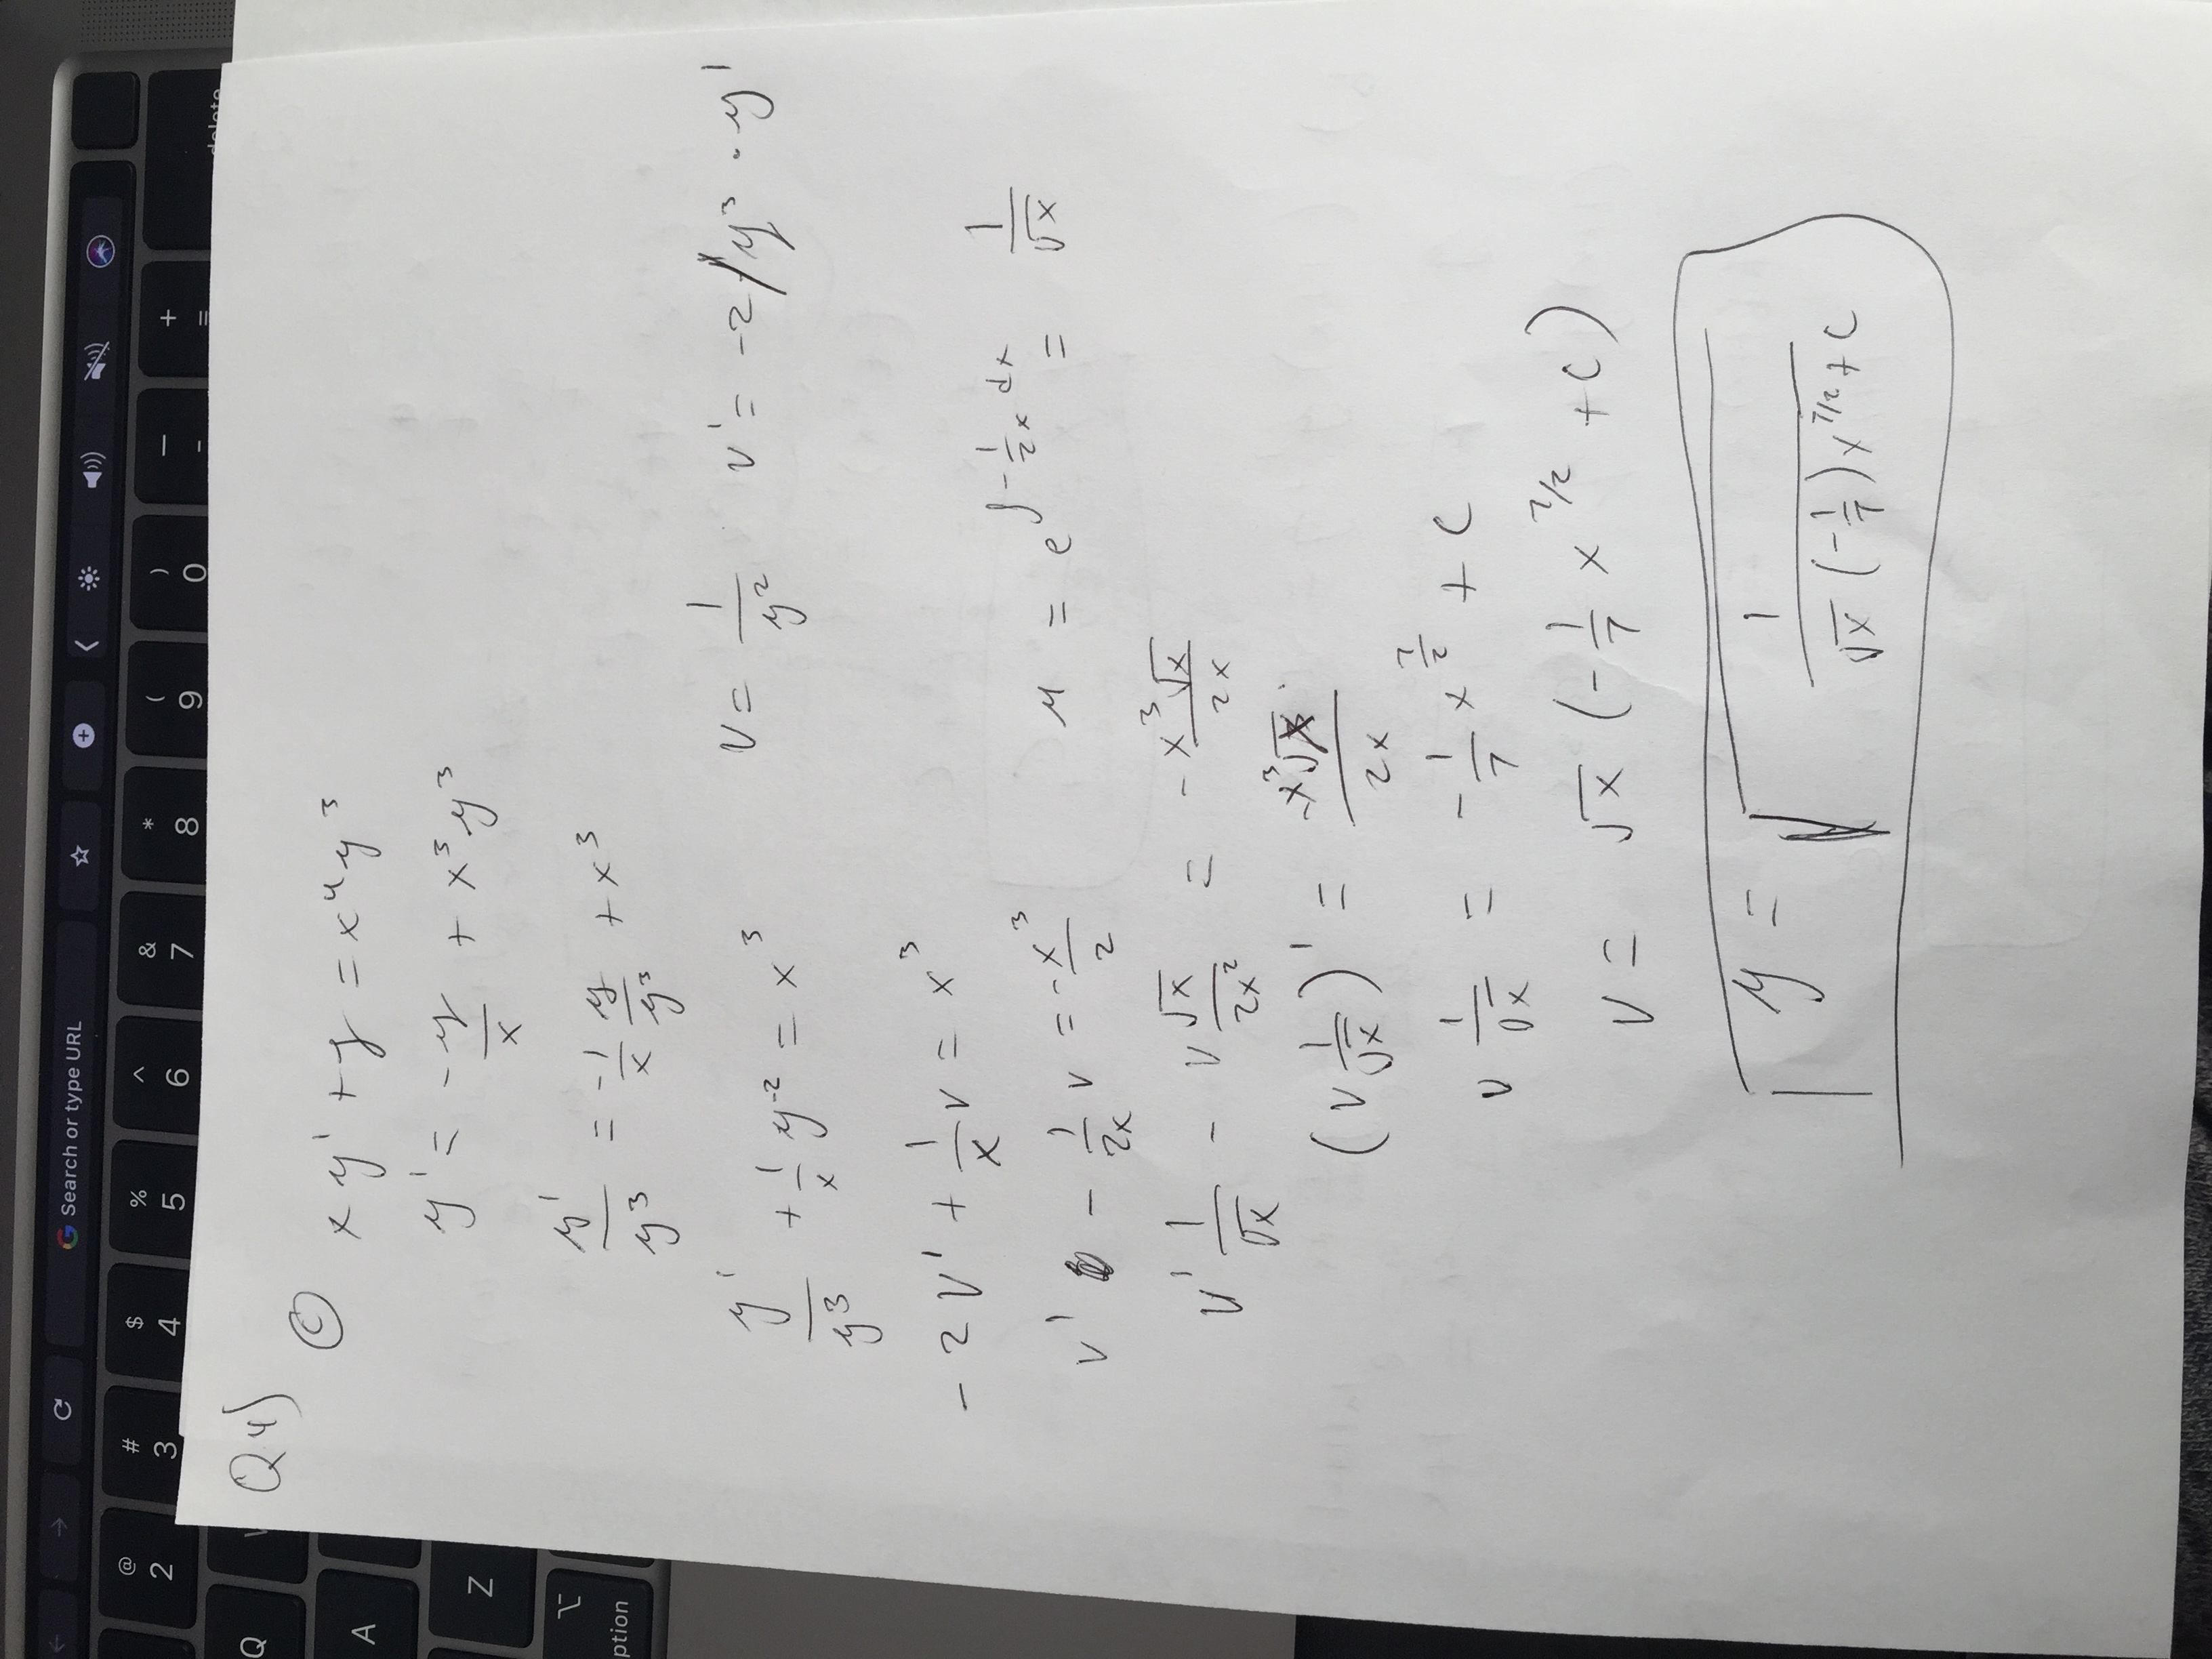 Search or type URL
@ # $ % ^ & * ( ) — +
2 3 4 5 6 7 8 9 0 - =
delete
Q
A
Z
⌥
ption
Q4)
ⓒ x y' + y = x⁴ y³
y' = -y/x + x³ y³
y'/y³ = -1/x y/y³ + x³
y'/y³ + 1/x y⁻² = x³ v = 1/y² v' = -2/y³ · y'
- 2 v' + 1/x v = x³
v' - 1/2x v = -x³/2 μ = e^∫-1/2x dx = 1/√x
v' 1/√x - v √x/2x² = - x³√x/2x
(v 1/√x)' = -x³√x/2x
v 1/√x = - 1/7 x^7/2 + C
v = √x (-1/7 x^7/2 + C)
y = √(1/(√x (-1/7) x^7/2 + C))